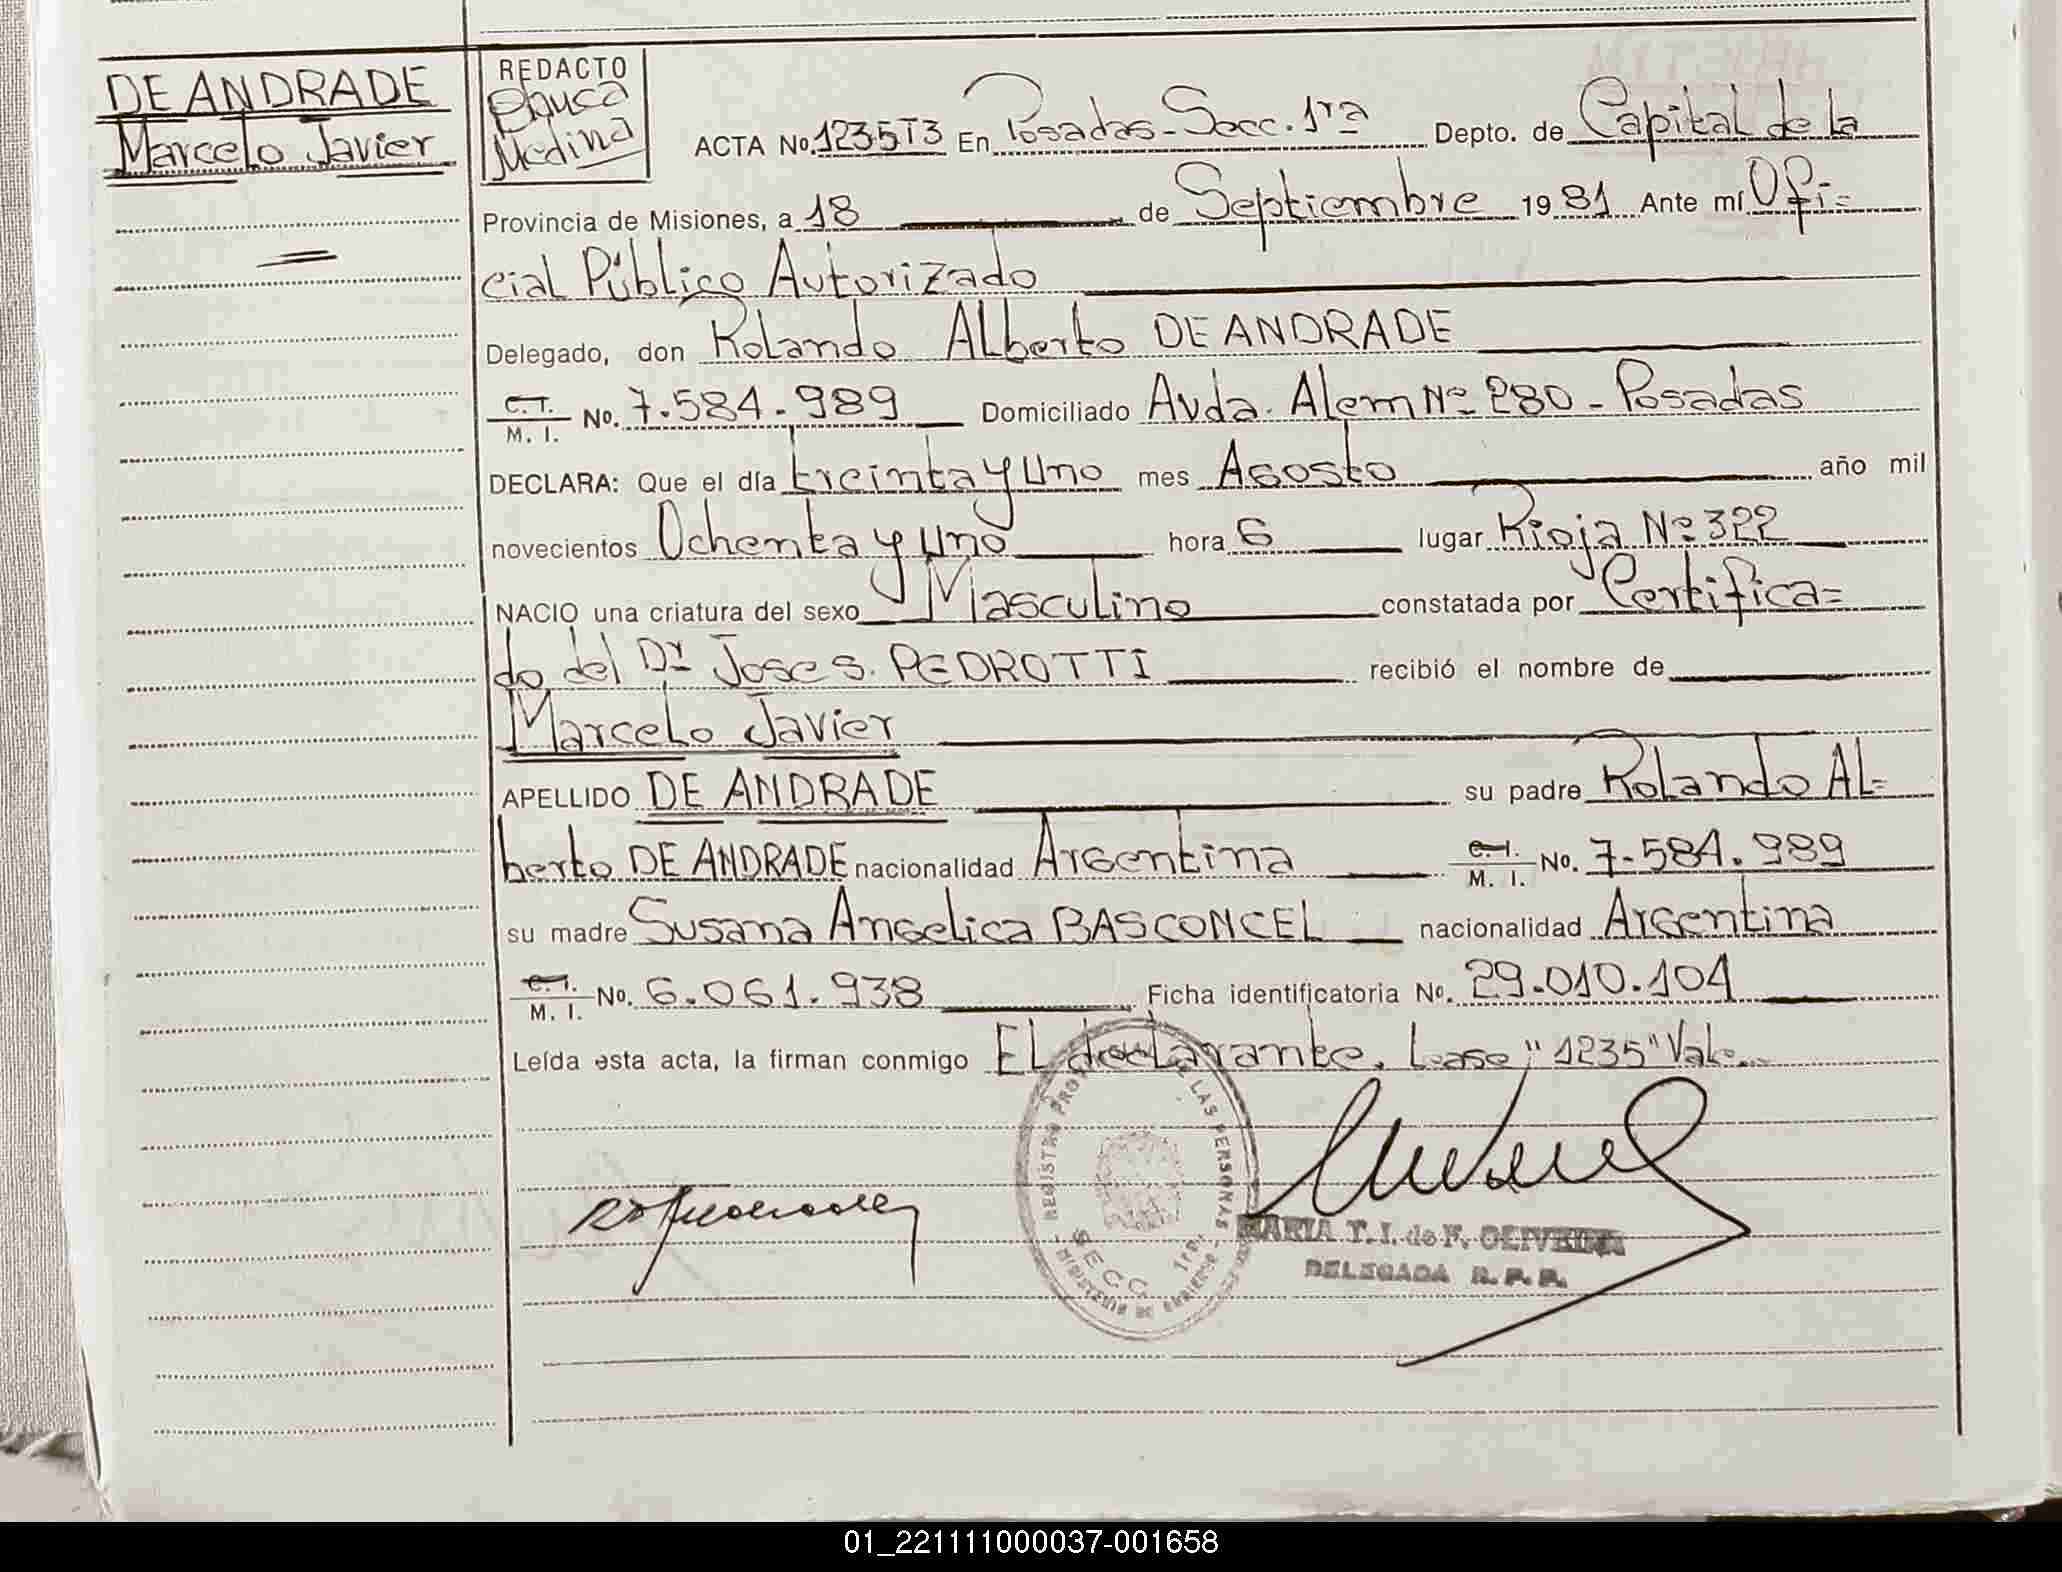 DE ANDRADE
Marcelo Javier
REDACTO
Blanca
Medina
ACTA No. 1235T3 En Posadas-Secc. 1ra Depto. de Capital de la
Provincia de Misiones, a 18 de Septiembre 1981 Ante mí Ofi=
cial Público Autorizado
Delegado, don Rolando Alberto DE ANDRADE
C.I. M. I. No. 7.584.989 Domiciliado Avda. Alem Nº 280 - Posadas
DECLARA: Que el día treinta y Uno mes Agosto año mil
novecientos Ochenta y Uno hora 6 lugar Rioja Nº 322
NACIO una criatura del sexo Masculino constatada por Certifica=
do del Dr Jose S. PEDROTTI recibió el nombre de
Marcelo Javier
APELLIDO DE ANDRADE su padre Rolando Al=
berto DE ANDRADE nacionalidad Argentina C.I. M. I. No. 7.584.989
su madre Susana Angelica BASCONCEL nacionalidad Argentina
C.I. M. I. No. 6.061.938 Ficha identificatoria No. 29.010.104
Leída esta acta, la firman conmigo El declarante. Lease "1235" Vale.
REGISTRO PRO LAS PERSONAS
SECC. 1ra.
MINISTERIO DE GOBIERNO
MARIA T. I. de F. OLIVEIRA
DELEGADA R. P. P.
01_221111000037-001658